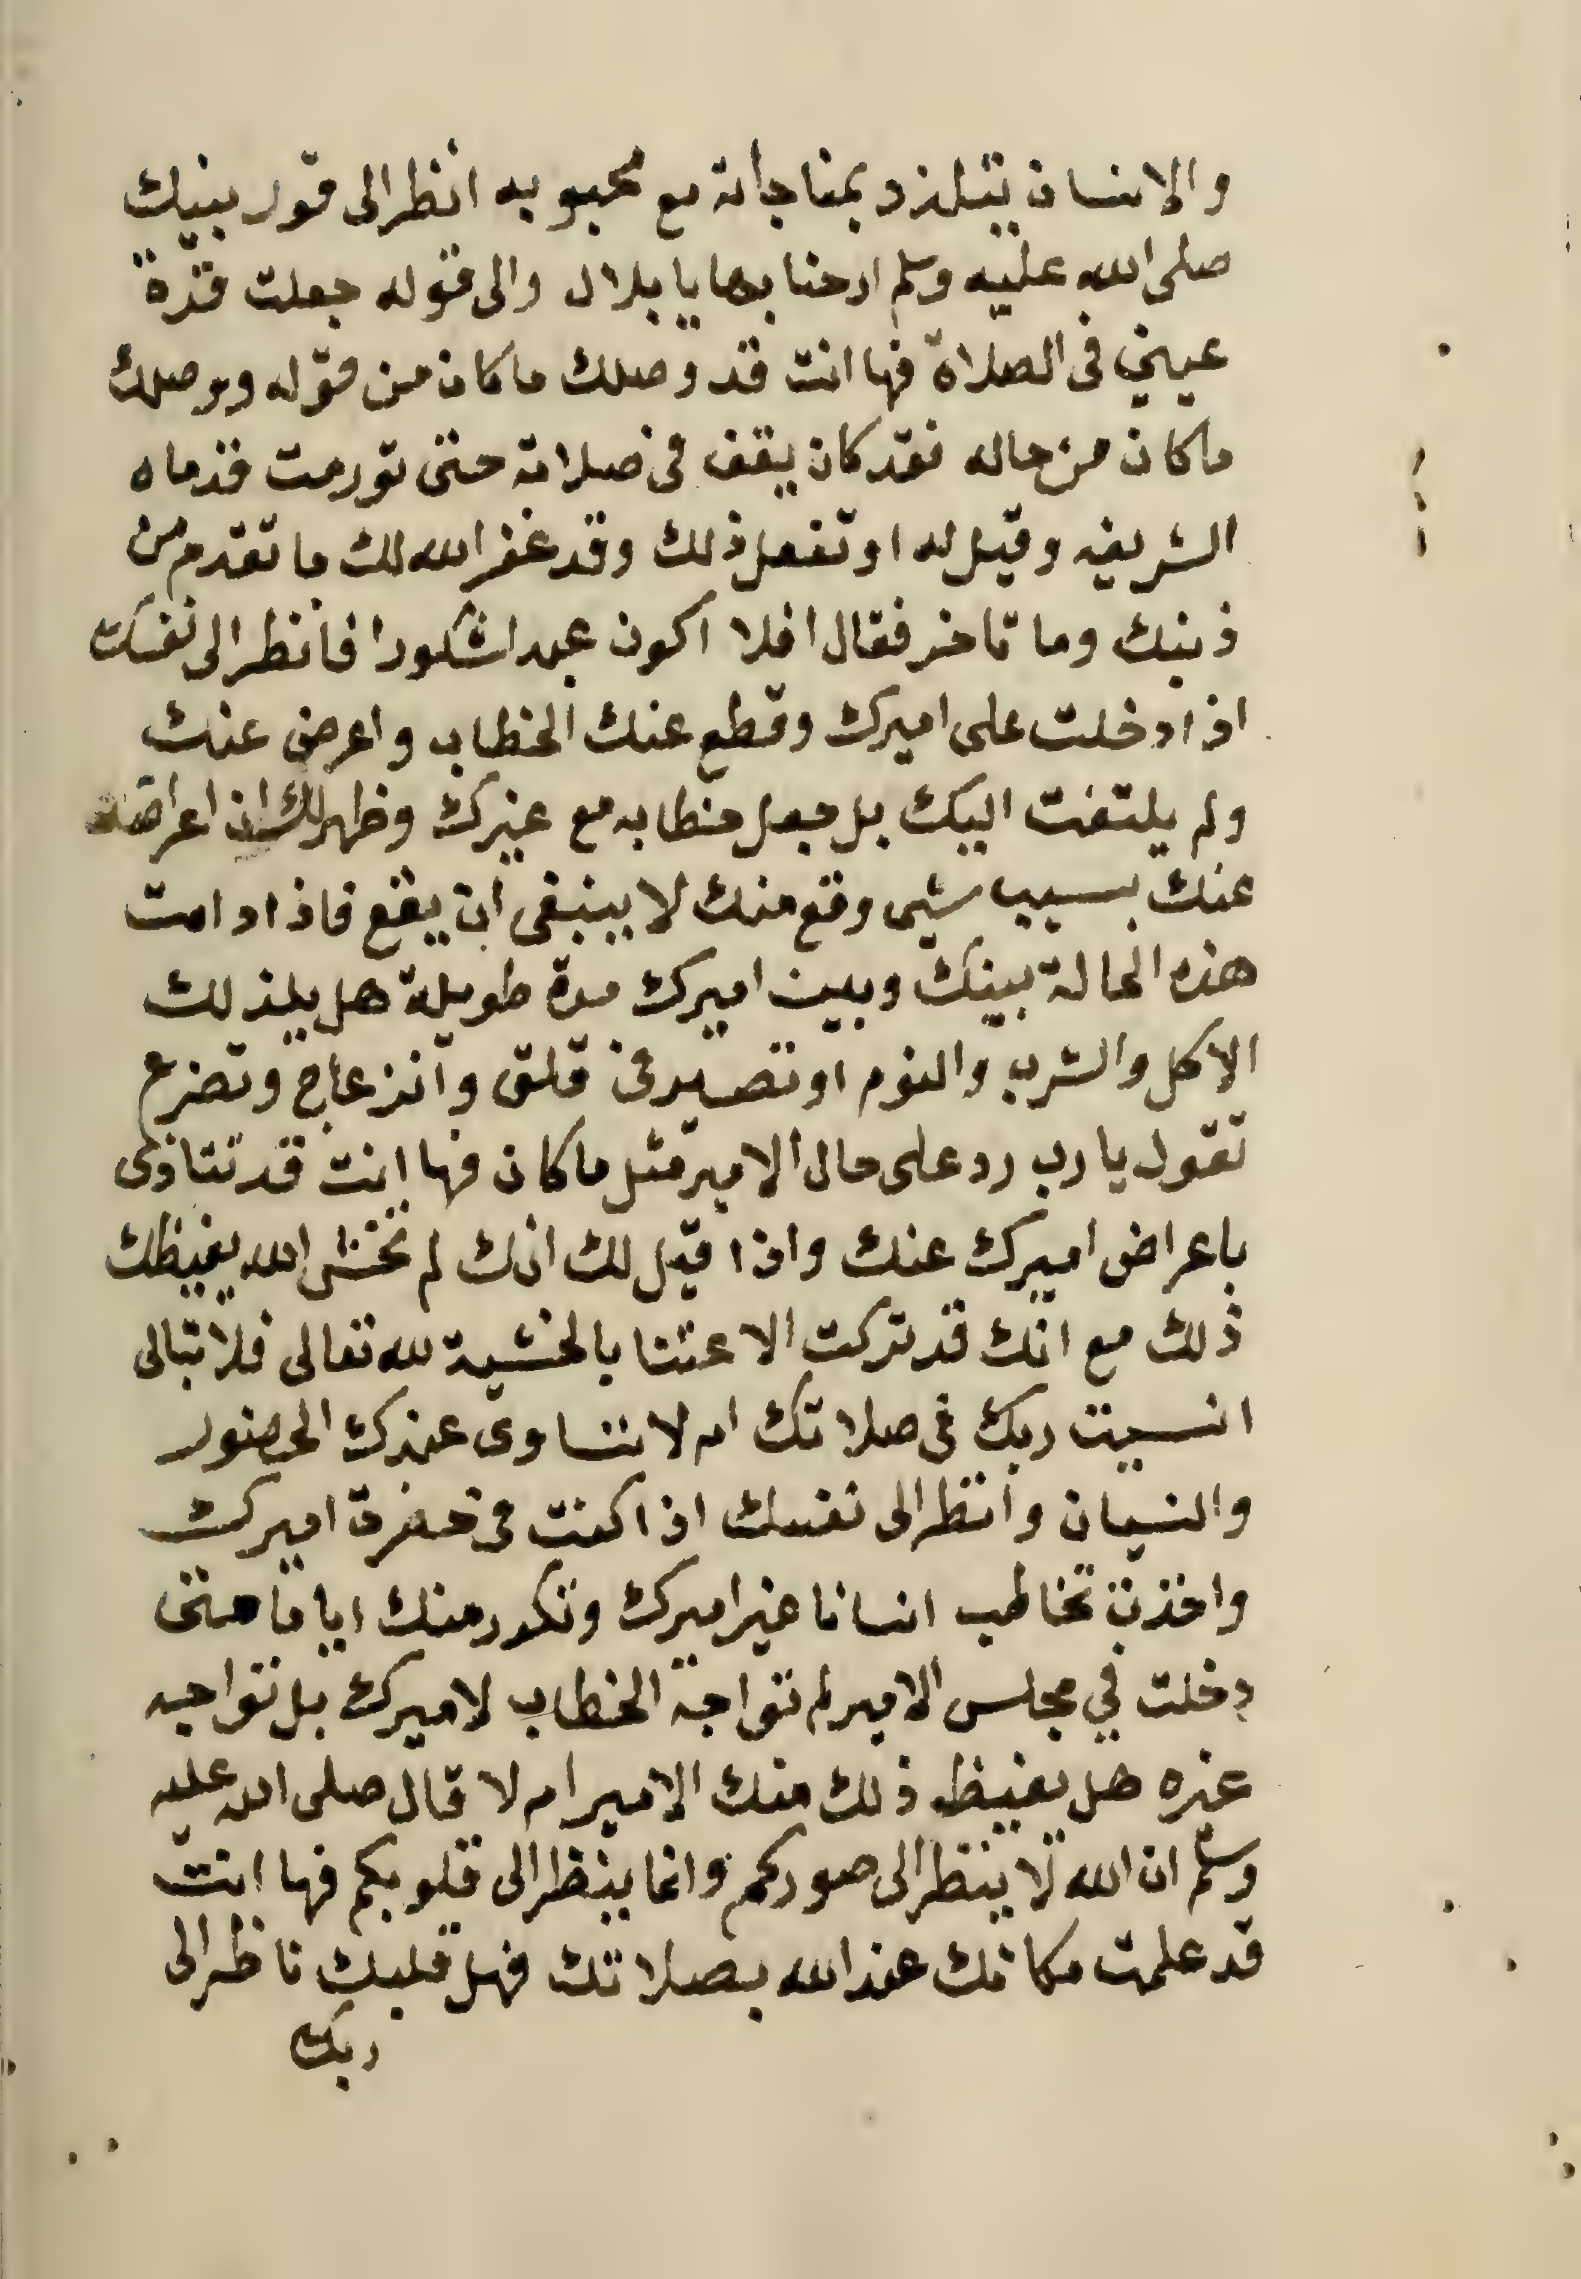 والانسان يتلذذ بمناجاته مع محبوبه انظر الى قول نبيك
صلى الله عليه وسلم ارحنا بها يا بلال والى قوله جعلت قرة
عيني فى الصلاة فها انت قد وصلك ما كان من قوله ووصلك
ما كان من حاله فقد كان يقف فى صلاته حتى تورمت قدماه
الشريفه وقيل له اوتفعل ذلك وقد غفر الله لك ما تقدم من
ذنبك وما تاخر فقال افلا اكون عبدا شكورا فانظر الى نفسك
اذا دخلت على اميرك وقطع عنك الخطاب واعرض عنك
ولم يلتفت اليك بل جعل خطابه مع غيرك وظهر لك ان اعراضه
عنك بسبب شى وقع منك لا ينبغى ان يقع فاذا دامت
هذه الحالة بينك وبين اميرك مدة طويلة هل يلذ لك
الاكل والشرب والنوم او تصير فى قلق وانزعاج وتضرع
تقول يا رب رد على حال الامير مثل ما كان فها انت قد تتاذى
باعراض اميرك عنك واذا قيل لك انك لم تخش الله يغيظك
ذلك مع انك قد تركت الاعتنا بالخشية لله تعالى فلا تبالى
انسيت ربك فى صلاتك ام لا تساوى عندك الحضور
والنسيان وانظر الى نفسك اذا كنت فى حضرة اميرك
واخذت تخاطب انسانا غير اميرك وتكرر منك اياما متى
دخلت في مجلس الامير لم تواجه الخطاب لاميرك بل تواجه
غيره هل يغيظ ذلك منك الامير ام لا قال صلى الله عليه
وسلم ان الله لا ينظر الى صوركم وانما ينظر الى قلوبكم فها انت
قد علمت مكانك عند الله بصلاتك فهل قلبك ناظر الى
ربك